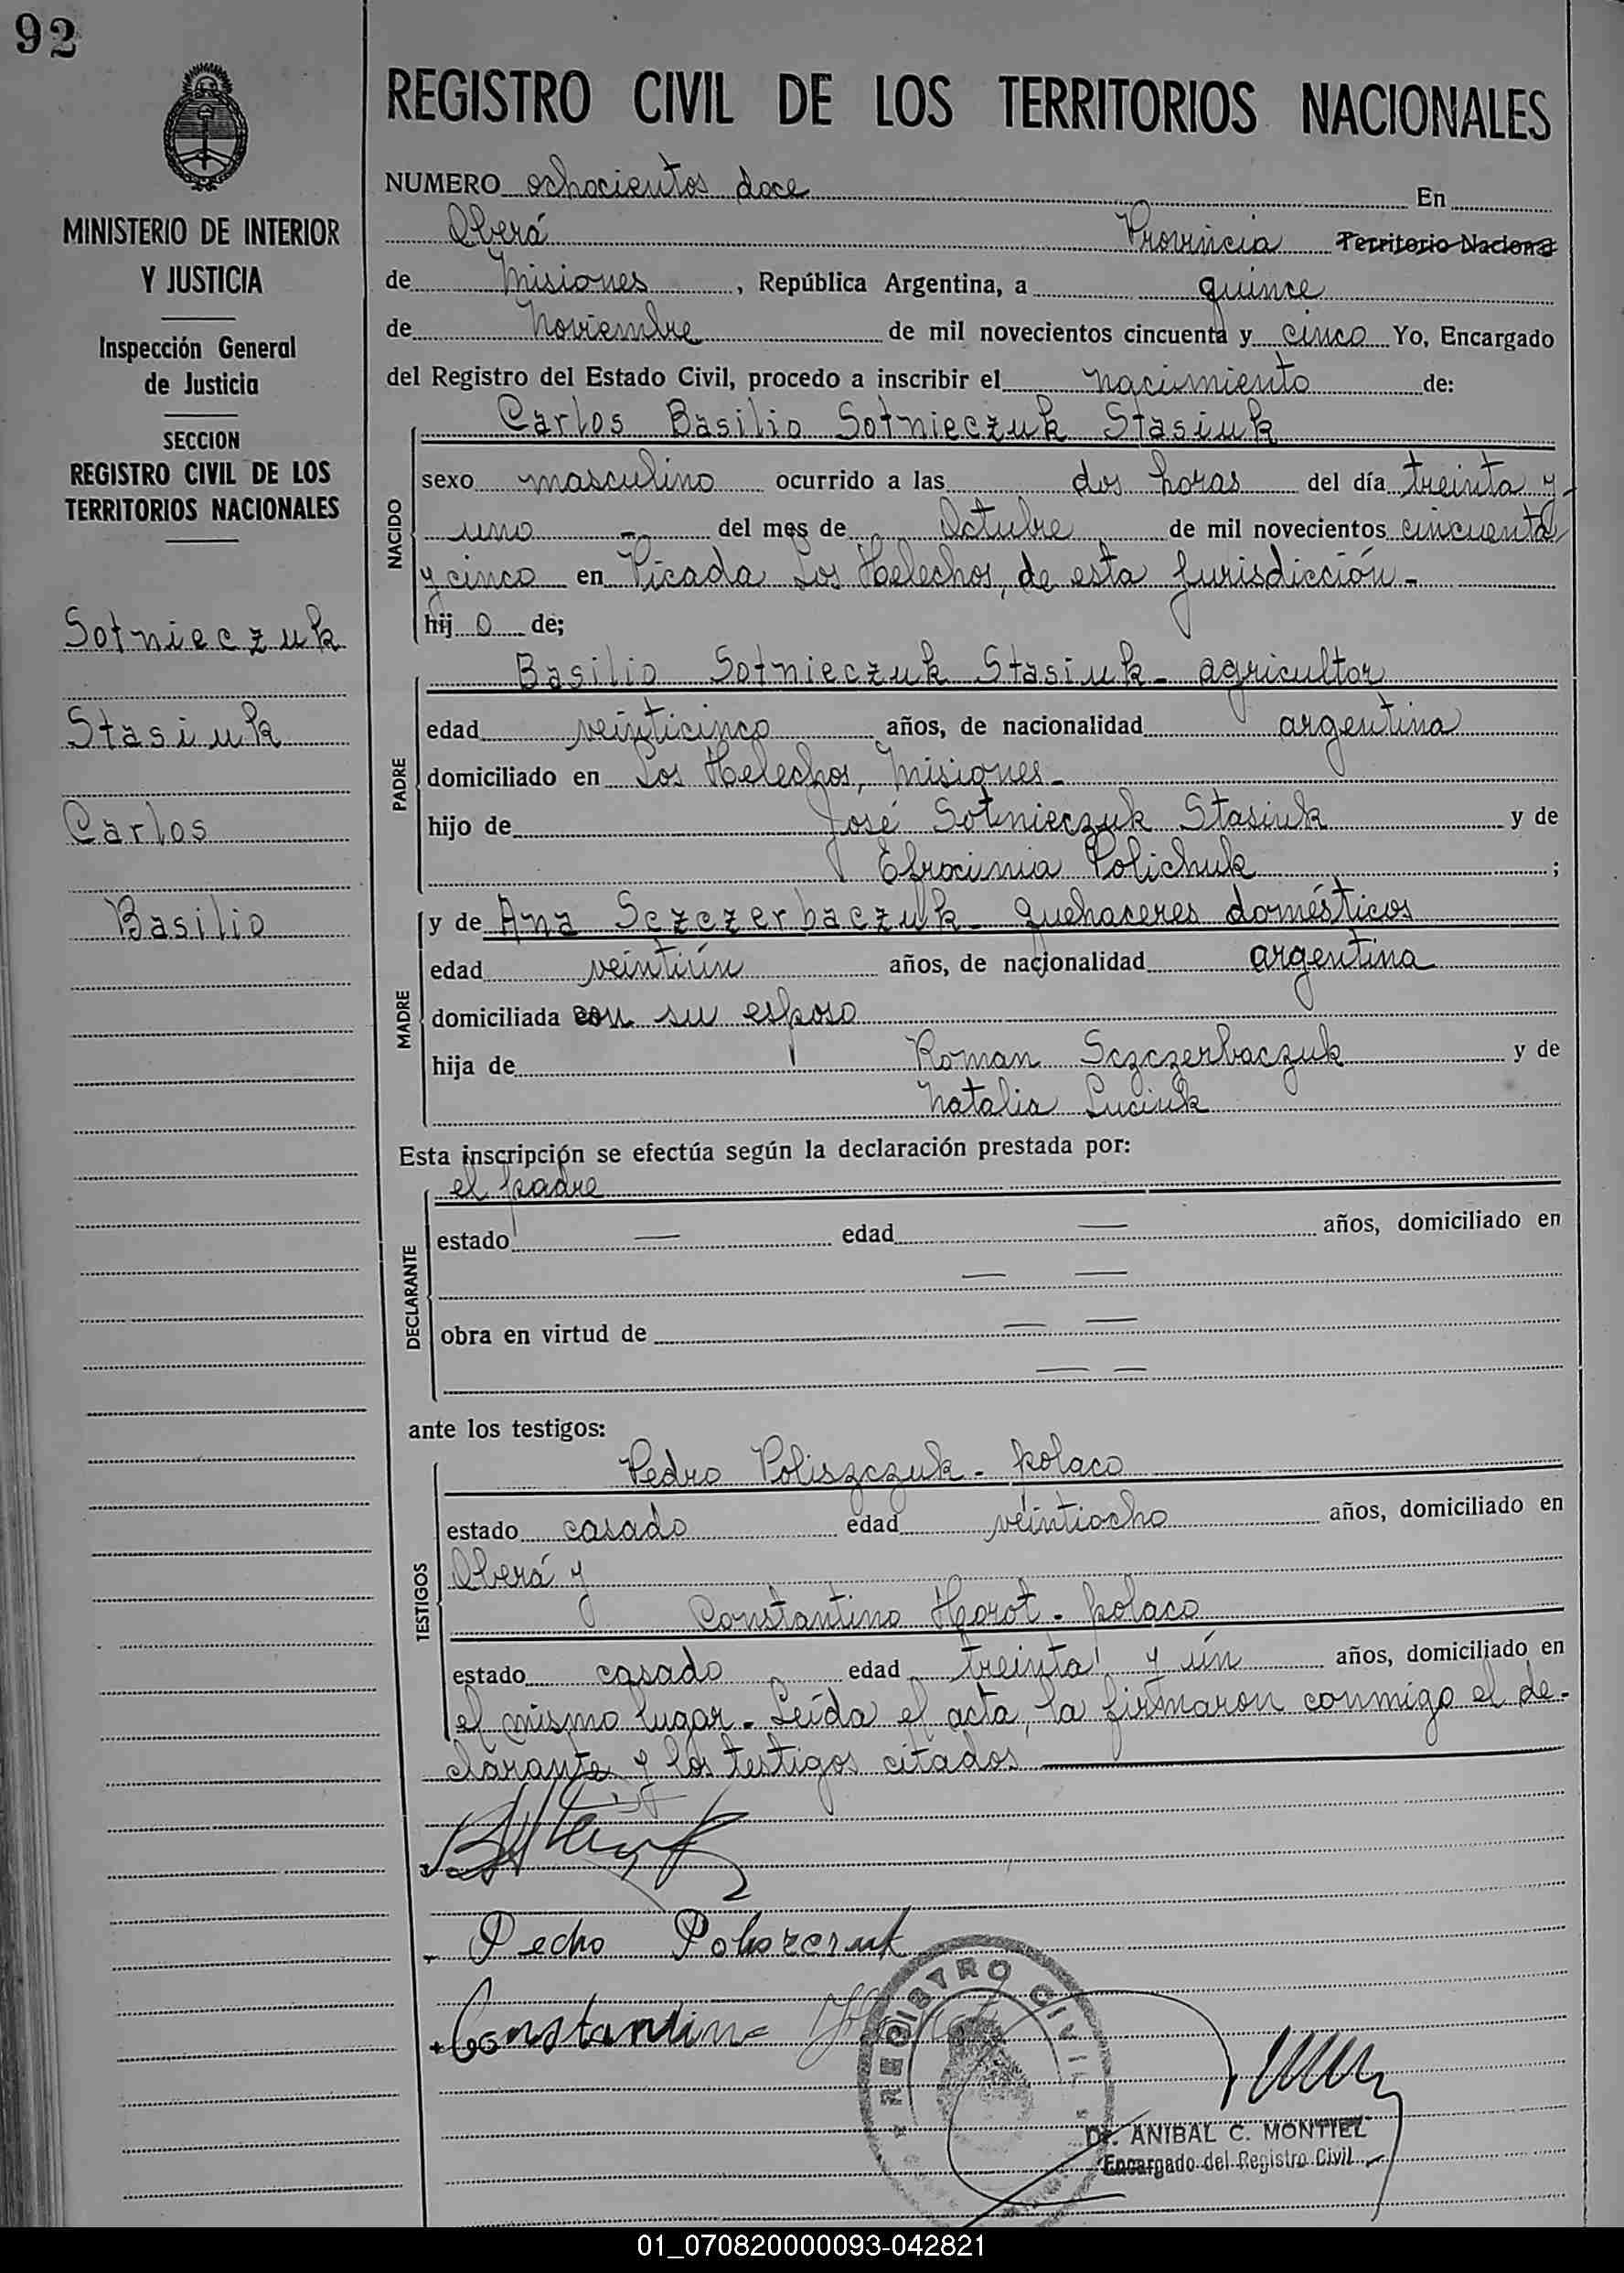 92
MINISTERIO DE INTERIOR
Y JUSTICIA
Inspección General
de Justicia
SECCION
REGISTRO CIVIL DE LOS
TERRITORIOS NACIONALES
Sotnieczuk
Stasiuk
Carlos
Basilio
REGISTRO CIVIL DE LOS TERRITORIOS NACIONALES
NUMERO ochocientos doce En
Oberá Provincia Territorio Nacional
de Misiones, República Argentina, a quince
de Noviembre de mil novecientos cincuenta y cinco Yo, Encargado
del Registro del Estado Civil, procedo a inscribir el nacimiento de:
NACIDO
Carlos Basilio Sotnieczuk Stasiuk
sexo masculino ocurrido a las dos horas del día treinta y
uno - del mes de Octubre de mil novecientos cincuenta
y cinco en Picada Los Helechos, de esta jurisdicción -
hij o de;
PADRE
Basilio Sotnieczuk Stasiuk - agricultor
edad veinticinco años, de nacionalidad argentina
domiciliado en Los Helechos, Misiones -
hijo de José Sotnieczuk Stasiuk y de
Efrocinia Polichuk ;
MADRE
y de Ana Sczczerbaczuk - quehaceres domésticos
edad veintiún años, de nacionalidad argentina
domiciliada con su esposo
hija de Roman Sczczerbaczuk y de
Natalia Luciuk
Esta inscripción se efectúa según la declaración prestada por:
DECLARANTE
el padre
estado — edad — años, domiciliado en
— —
obra en virtud de — —
— —
ante los testigos:
TESTIGOS
Pedro Poliszczuk - polaco
estado casado edad veintiocho años, domiciliado en
Oberá y
Constantino Horot - polaco
estado casado edad treinta y un años, domiciliado en
el mismo lugar - Leída el acta, la firmaron conmigo el de-
clarante y los testigos citados
Pedro Poliszczuk
Constantino
REGISTRO CIVIL
Dr. ANIBAL C. MONTIEL
Encargado del Registro Civil
01_070820000093-042821